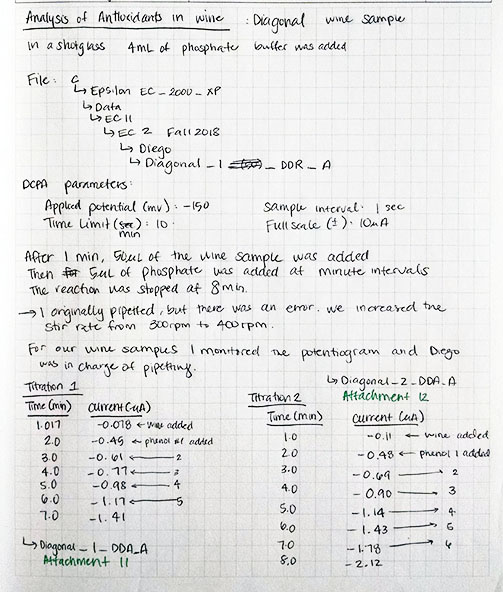 Analysis of Antioxidants in wine : Diagonal wine sample
In a shotglass 4mL of phosphate buffer was added
File: C
↳ Epsilon EC_2000_XP
↳ Data
↳ EC II
↳ EC 2 Fall 2018
↳ Diego
↳ Diagonal_1 _DDR_A
DCPA parameters:
Applied potential (mV): -150
Sample interval: 1 sec
Time Limit (sec) : 10
min
Full scale (±): 10uA
After 1 min, 50uL of the wine sample was added
Then 5uL of phosphate was added at minute intervals
The reaction was stopped at 8min.
→ I originally pipetted, but there was an error. we increased the
stir rate from 300rpm to 400rpm.
For our wine samples I monitored the potentiogram and Diego
was in charge of pipetting.
Titration 1
Time (min) current (uA)
1.017 -0.078 ← wine added
2.0 -0.45 ← phenol #1 added
3.0 -0.61 ← 2
4.0 -0.77 ← 3
5.0 -0.98 ← 4
6.0 -1.17 ← 5
7.0 -1.41
↳ Diagonal_1_DDA_A
Attachment 11
↳ Diagonal_2_DDA_A
Titration 2 Attachment 12
Time (min) current (uA)
1.0 -0.11 ← wine added
2.0 -0.48 ← phenol 1 added
3.0 -0.69 → 2
4.0 -0.90 → 3
5.0 -1.14 → 4
6.0 -1.43 → 5
7.0 -1.78 → 6
8.0 -2.12